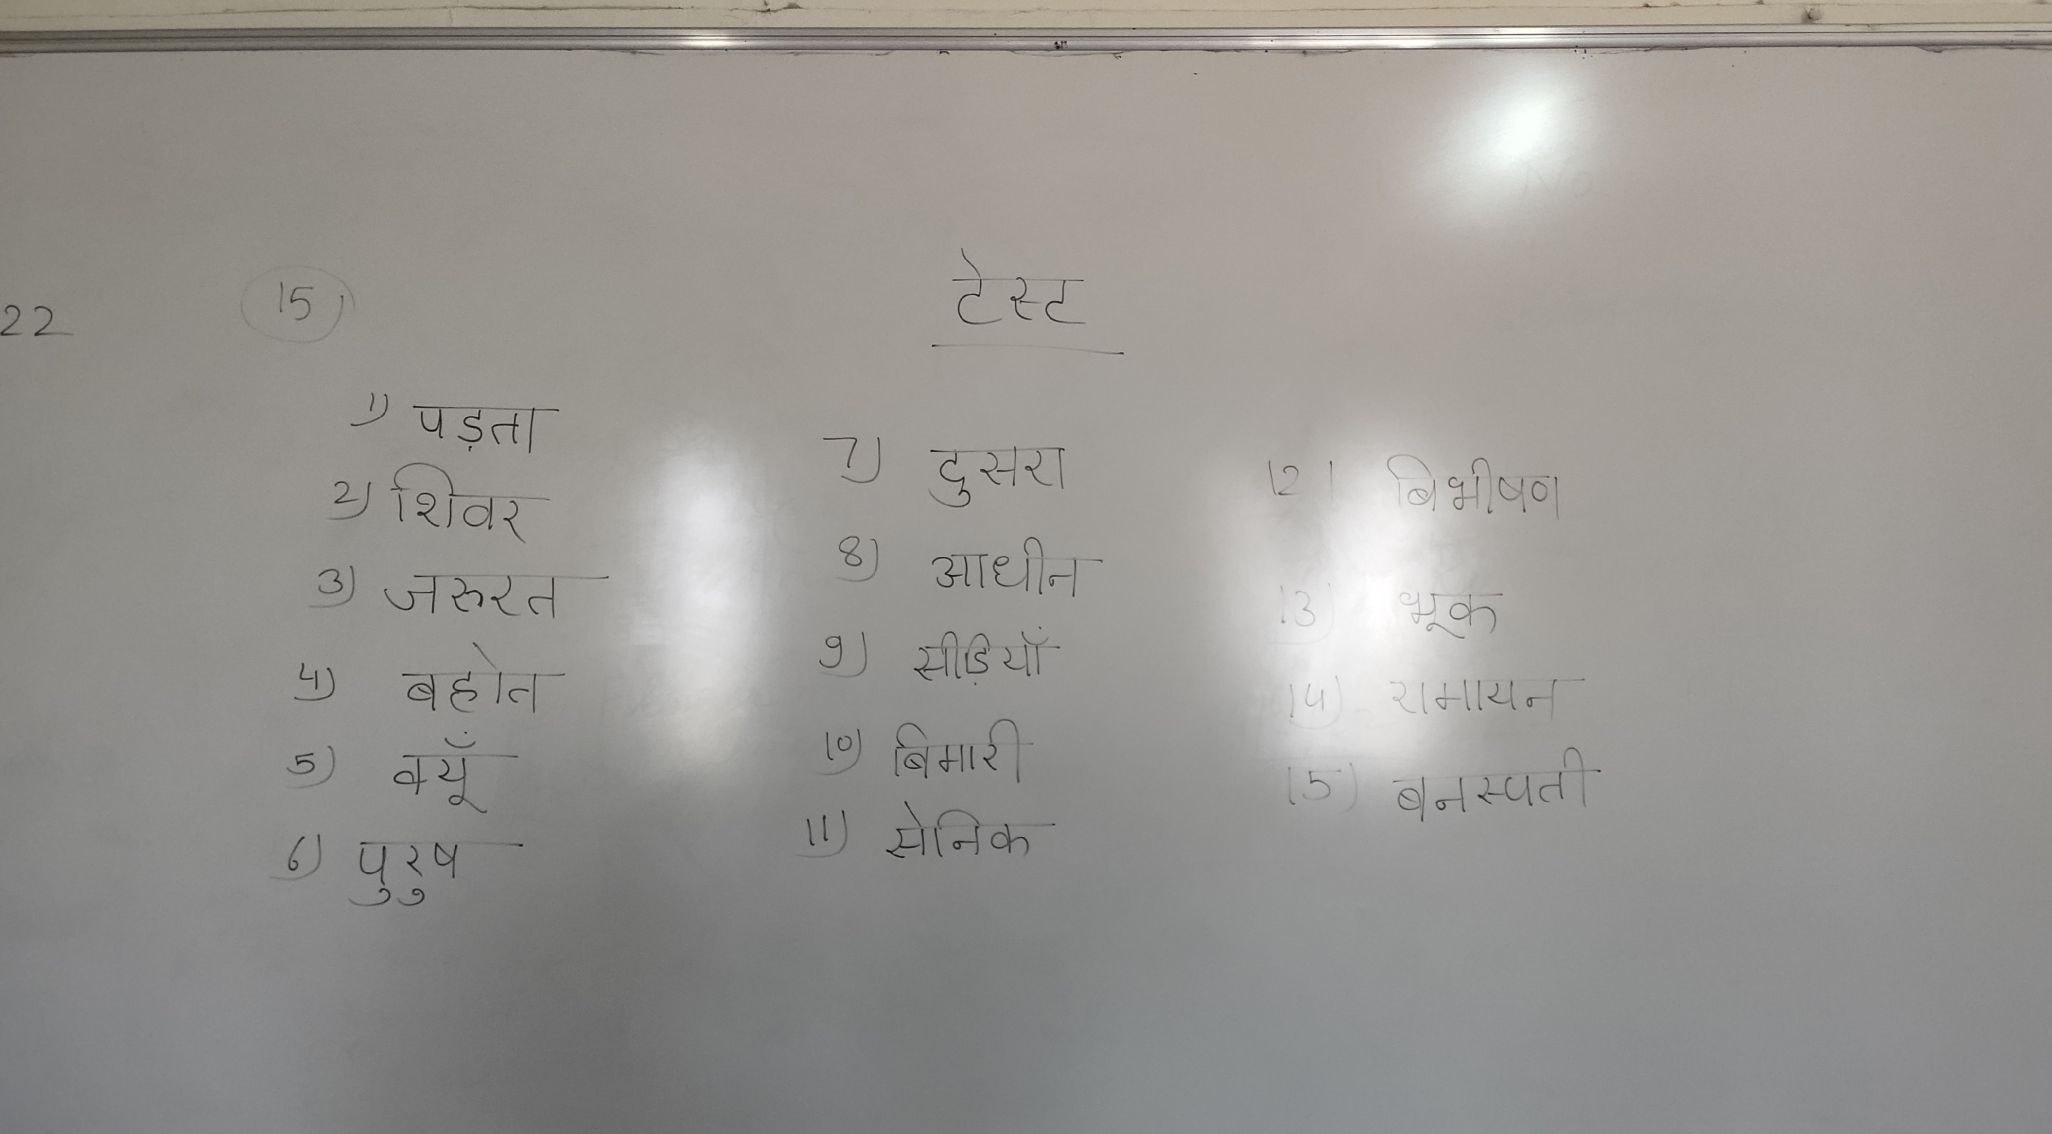 22
15
टेस्ट
1) पड़ता
2) शिवर
3) जरुरत
4) बहोत
5) क्यूँ
6) पुरुष
7) दुसरा
8) आधीन
9) सीड़ियाँ
10) बिमारी
11) सेनिक
12) बिभीषण
13) भूक
14) रामायन
15) बनस्पती